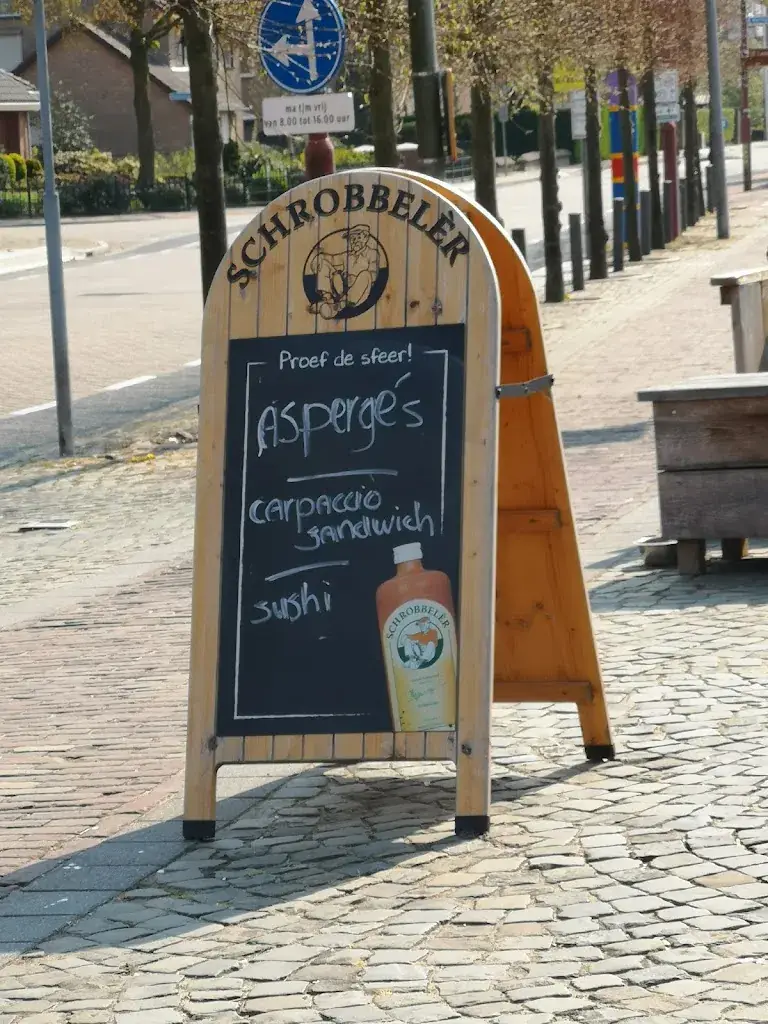 ma t/m vrij
van 8.00 tot 16.00 uur
SCHROBBELÈR
Proef de sfeer!
Asperge's
carpaccio
sandwich
sushi
SCHROBBELÈR